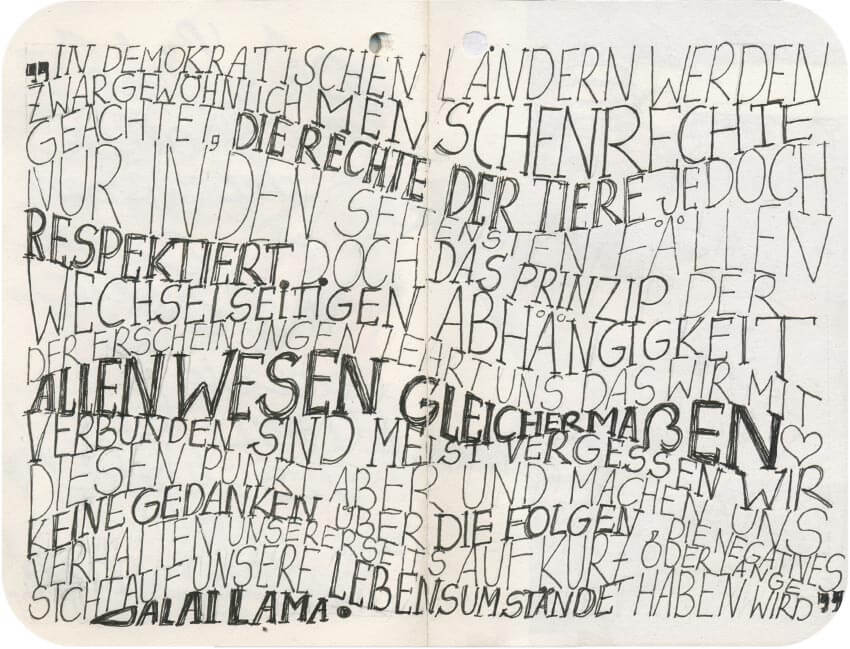 „IN DEMOKRATISCHEN LÄNDERN WERDEN
ZWAR GEWÖHNLICH MENSCHENRECHTE
GEACHTET, DIE RECHTE DER TIERE JEDOCH
NUR IN DEN SELTENSTEN FÄLLEN
RESPEKTIERT DOCH DAS PRINZIP DER
WECHSELSEITIGEN ABHÄNGIGKEIT
DER ERSCHEINUNGEN LEHRT UNS DAS WIR MIT
ALLEN WESEN GLEICHERMAßEN ♡
VERBUNDEN SIND MEIST VERGESSEN WIR
DIESEN PUNKT ABER UND MACHEN UNS
KEINE GEDANKEN ÜBER DIE FOLGEN, DIE NEGATIVES
VERHALTEN UNSERERSEITS AUF KURZ- ODER LANGE
SICHT AUF UNSERE LEBENSUMSTÄNDE HABEN WIRD"
DALAI LAMA.